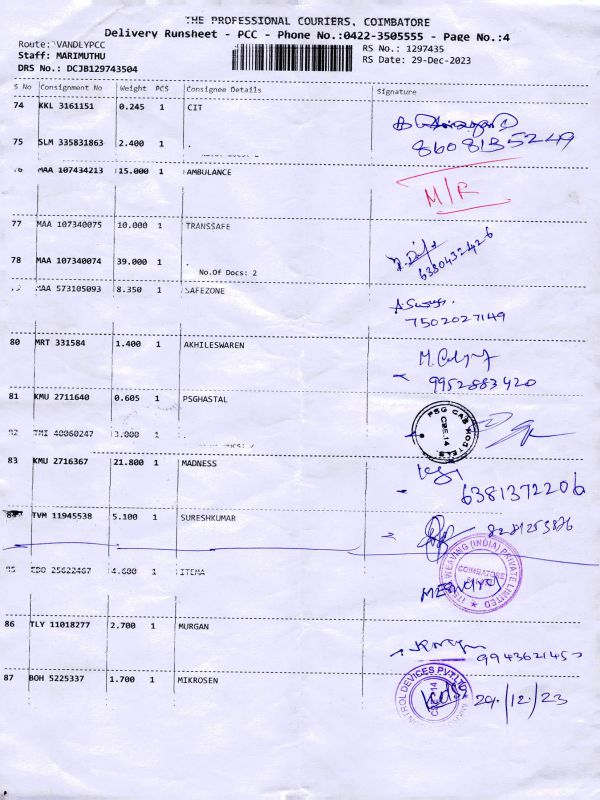 THE PROFESSIONAL COURIERS, COIMBATORE
Delivery Runsheet - PCC - Phone No.:0422-3505555 - Page No.:4
Route: VANDLYPCC
RS No.: 1297435
Staff: MARIMUTHU
RS Date: 29-Dec-2023
DRS No.: DCJB129743504
S No Consignment No Weight PCS Consignee Details Signature
74 KKL 3161151 0.245 1 CIT
75 SLM 335831863 2.400 1 .
8608135249
MAA 107434213 15.000 1 AMBULANCE
M/R
77 MAA 107340075 10.000 1 TRANSSAFE
78 MAA 107340074 39.000 1 .
6380432426
No.Of Docs: 2
MAA 573105093 8.350 1 SAFEZONE
7502027149
80 MRT 331584 1.400 1 AKHILESWAREN
9952883420
81 KMU 2711640 0.605 1 PSGHASTAL
82 TMI 40060247 13.000 1
83 KMU 2716367 21.800 1 MADNESS
6381372206
84 TVM 11945538 5.100 1 SURESHKUMAR
85 EDO 25622467 4.600 1 ITEMA
WEAVING (INDIA) PRIVATE LIMITED
COIMBATORE
86 TLY 11018277 2.700 1 MURGAN
87 BOH 5225337 1.700 1 MIKROSEN
CONTROL DEVICES PVT LTD
29/12/23